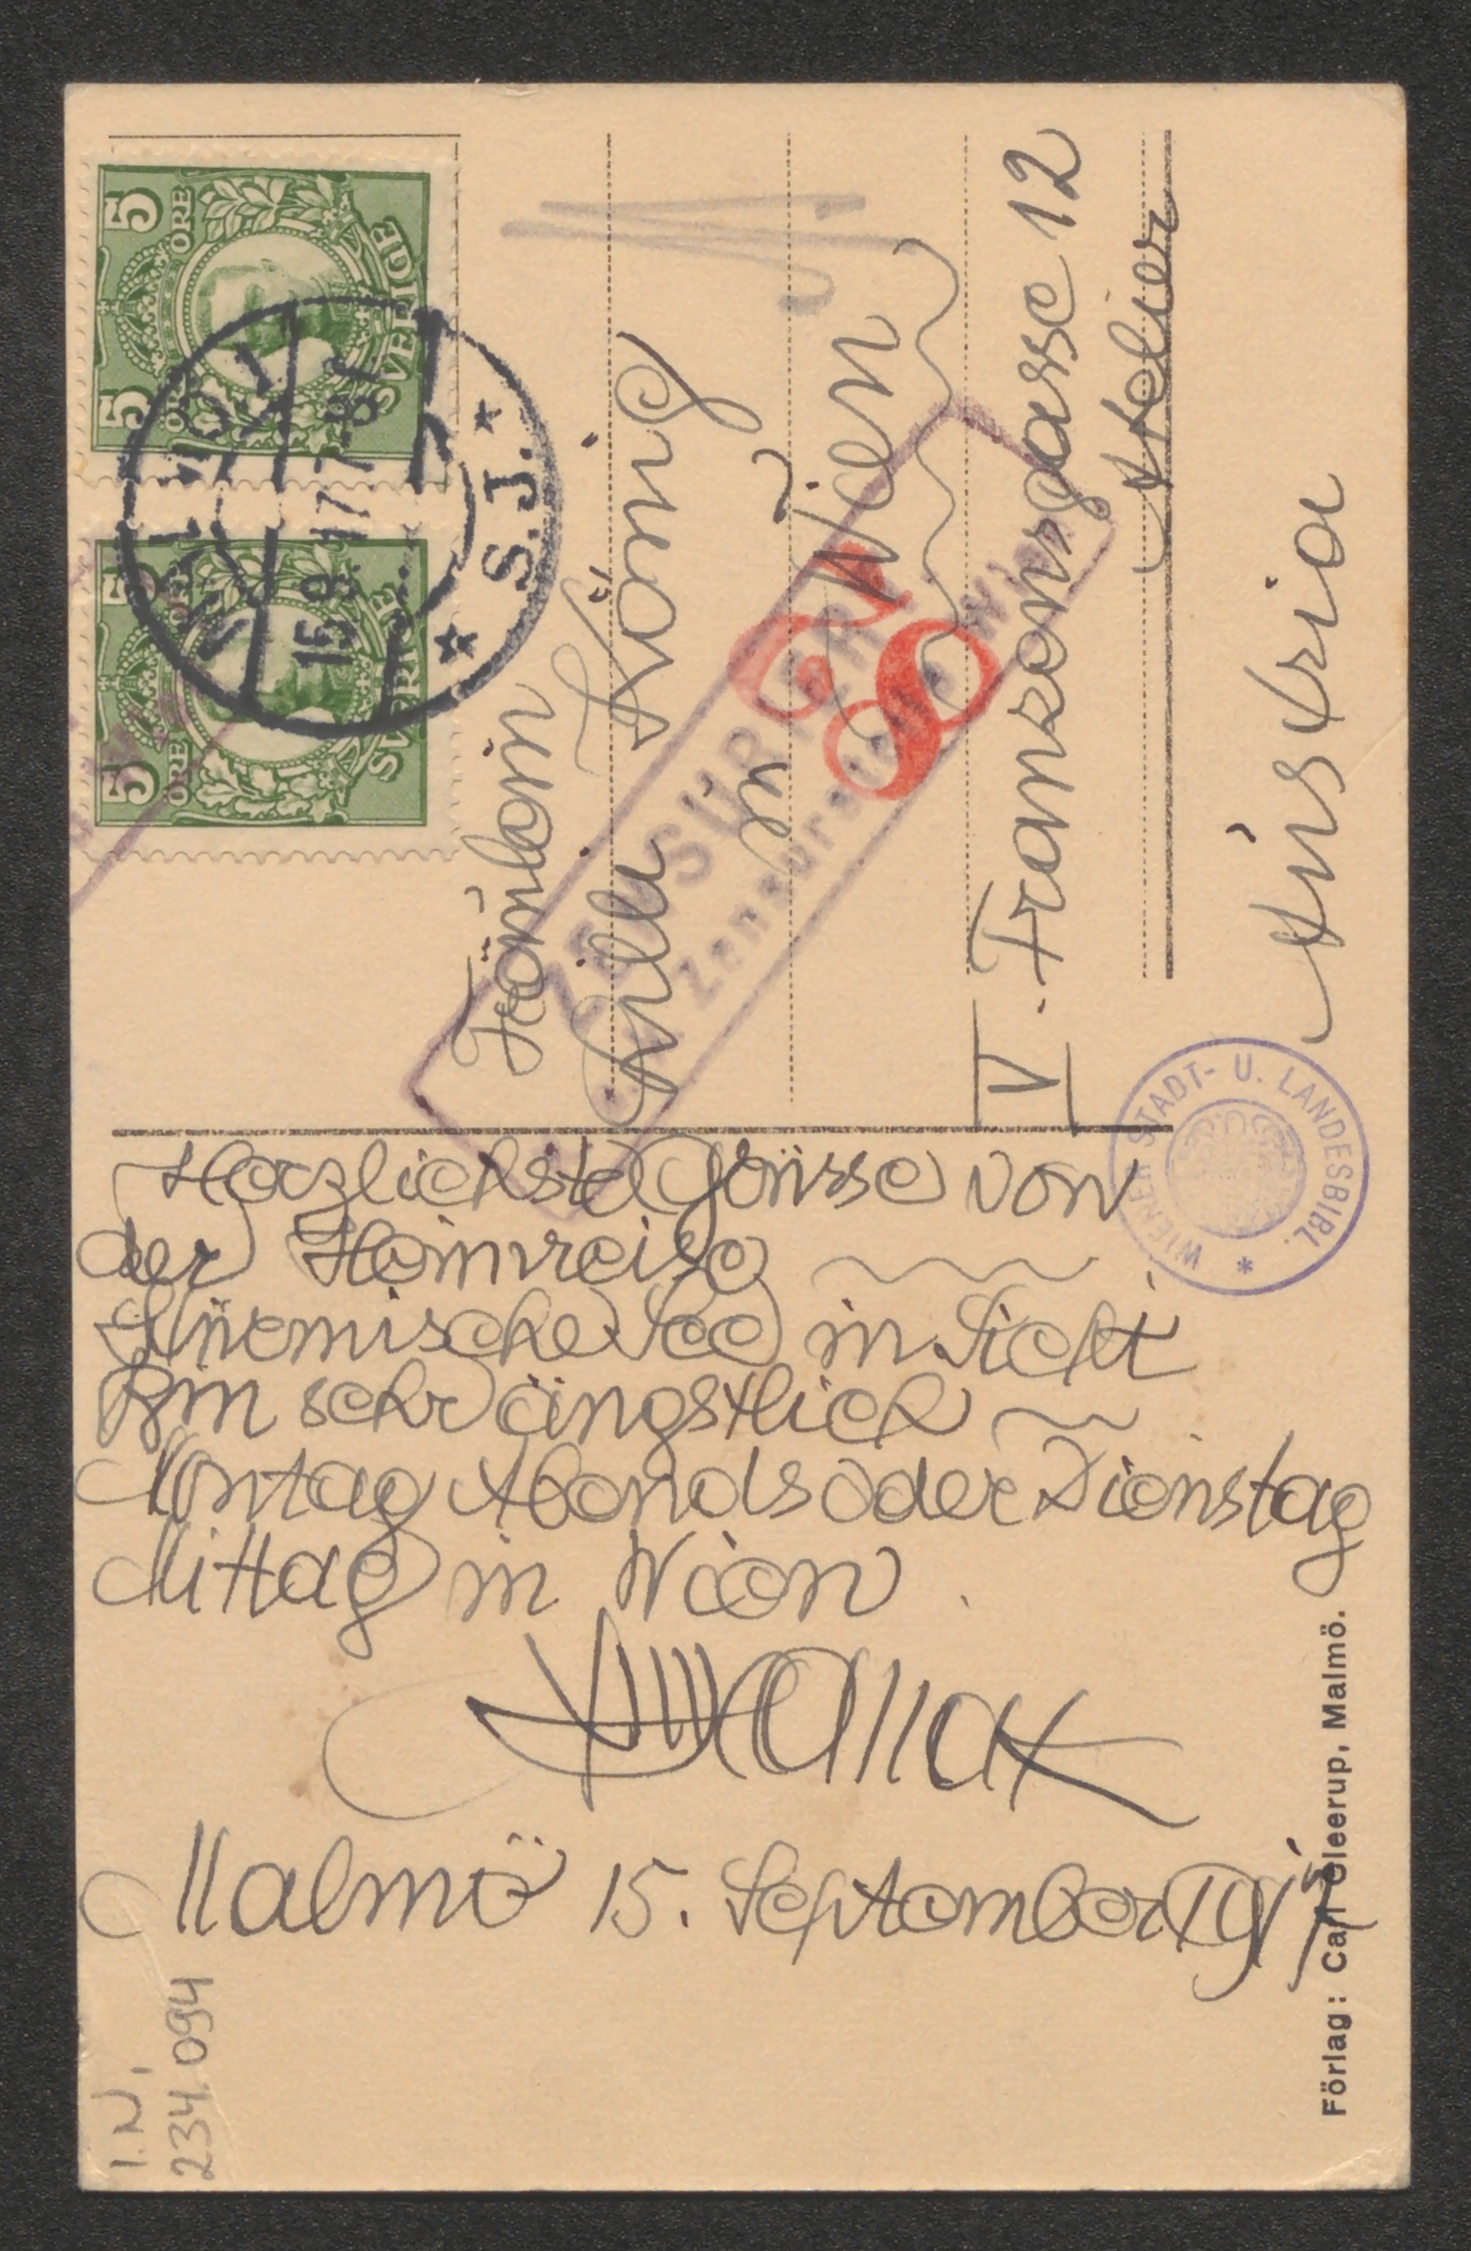 Herzlichste Grüsse von
der Heimreise
Stürmische See in Sicht
Bin sehr ängstlich
Montag Abends oder Dienstag
Mittag in Wien.
Malmö 15. September 1917
Fräulein
Lilli König
in Wien
V. Franzensgasse 12
Atelier
Austria
5 ÖRE 5
SVERIGE
5 ÖRE 5
SVERIGE
15.9.17.7-8
S.J.
ZENSURIERT
Zensurstelle Wien
68
WIENER STADT- U. LANDESBIBL.
Förlag: Carl Gleerup, Malmö.
I.N.
234.094